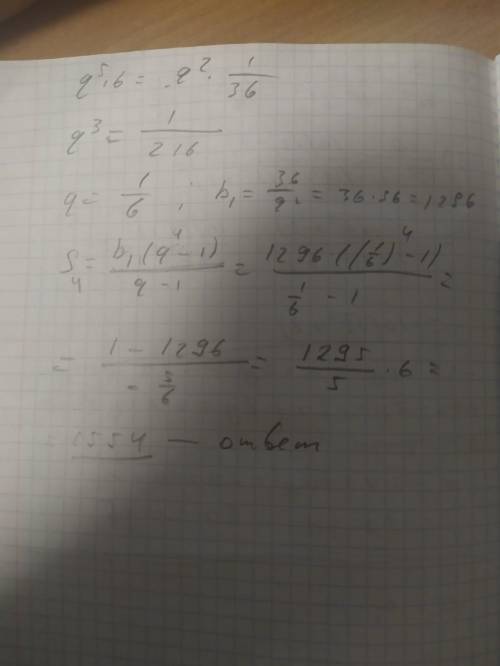 q⁵·6 = q² · 1/36
q³ = 1/216
q = 1/6 ; b₁ = 36/q² = 36·36 = 1296
S₄ = b₁(q⁴ - 1)/(q - 1) = 1296·((1/6)⁴ - 1)/(1/6 - 1) =
= (1 - 1296)/(-5/6) = 1295/5 · 6 =
1554 — ответ